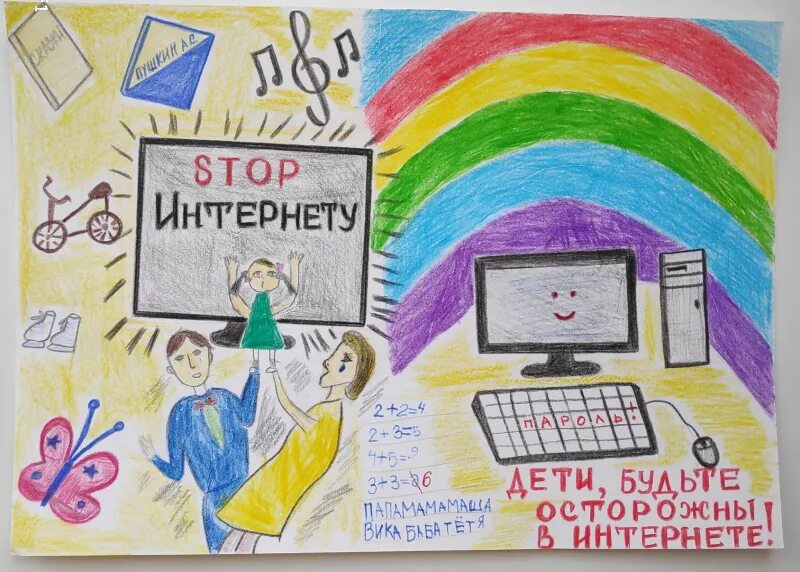 СКАЗКИ
ПУШКИН А.С.
STOP
ИНТЕРНЕТУ
2+2=4
2+3=5
4+5=9
3+3=6
ПАПАМАМАМАША
ВИКА БАБА ТЁТЯ
ПАРОЛЬ!
ДЕТИ, БУДЬТЕ
ОСТОРОЖНЫ
В ИНТЕРНЕТЕ!